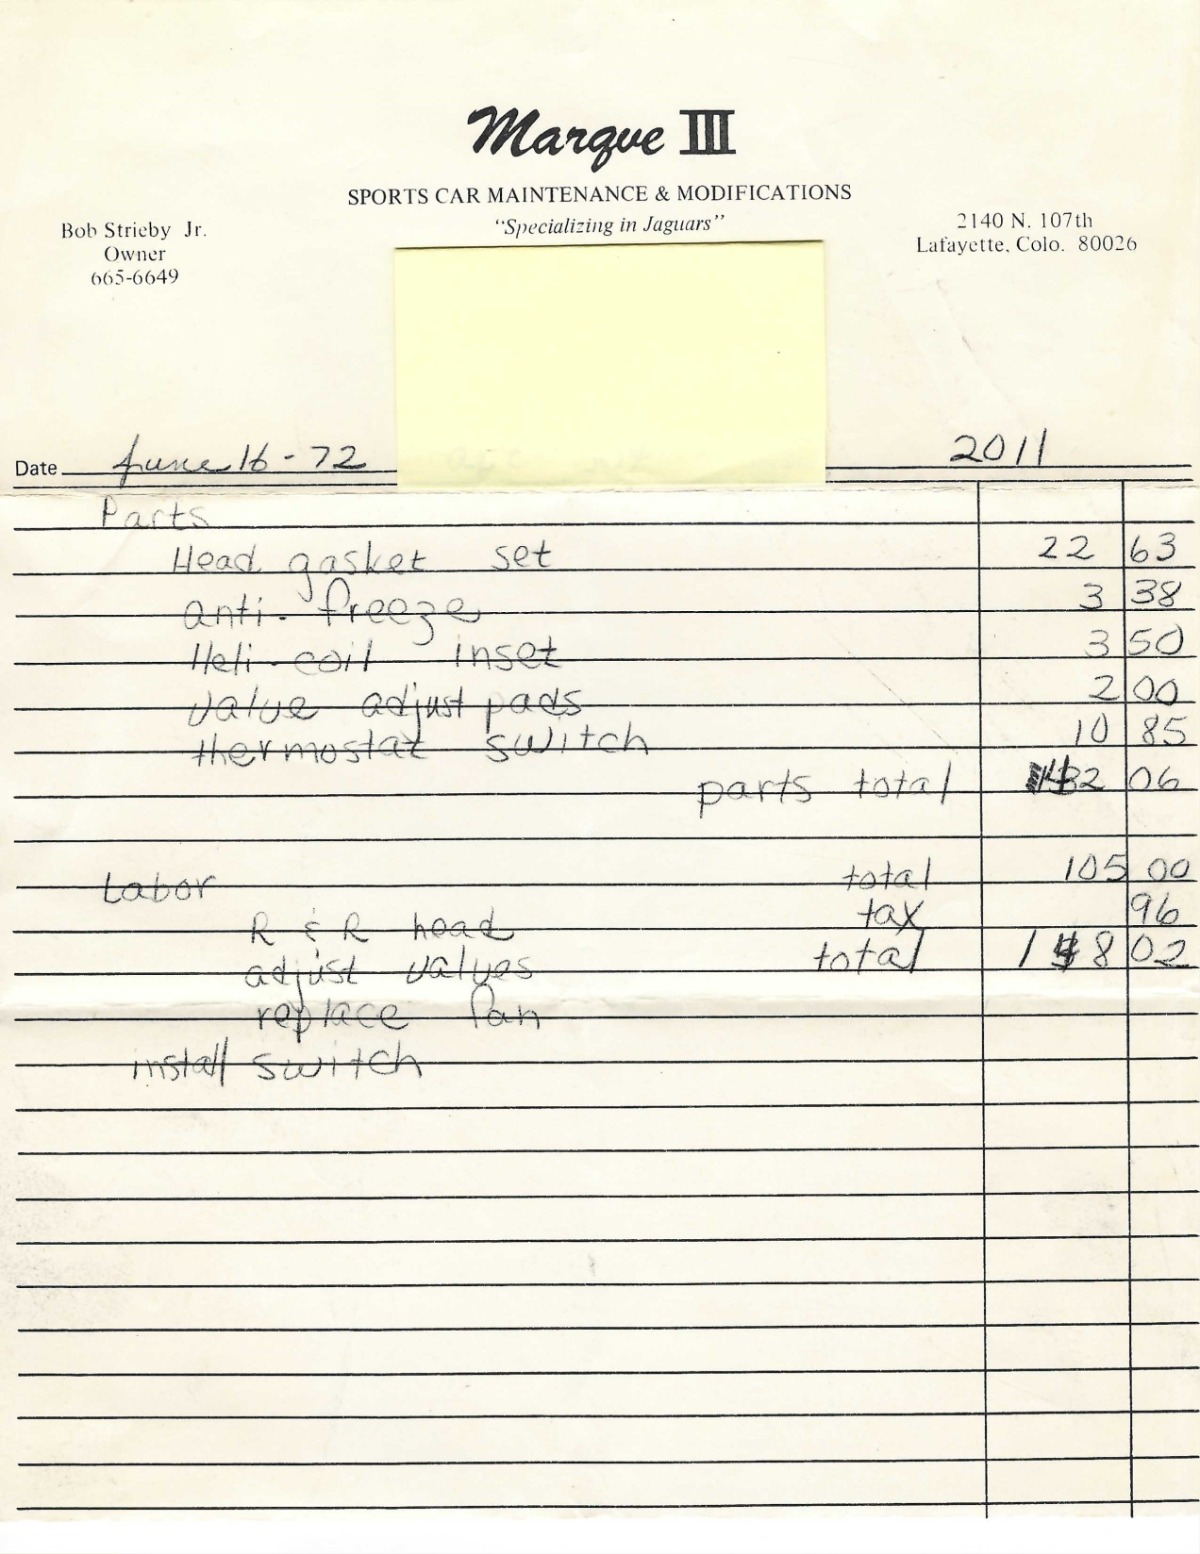 Marque III
SPORTS CAR MAINTENANCE & MODIFICATIONS
"Specializing in Jaguars"
Bob Strieby Jr.
Owner
665-6649
2140 N. 107th
Lafayette, Colo. 80026
Date June 16-72 2011
Parts
Head gasket set 22 63
anti-freeze 3 38
Heli-coil inset 3 50
value adjust pads 2 00
thermostat switch 10 85
parts total 06
total 105 00
Labor
tax 96
R & R head
total 02
adjust values
replace fan
install switch